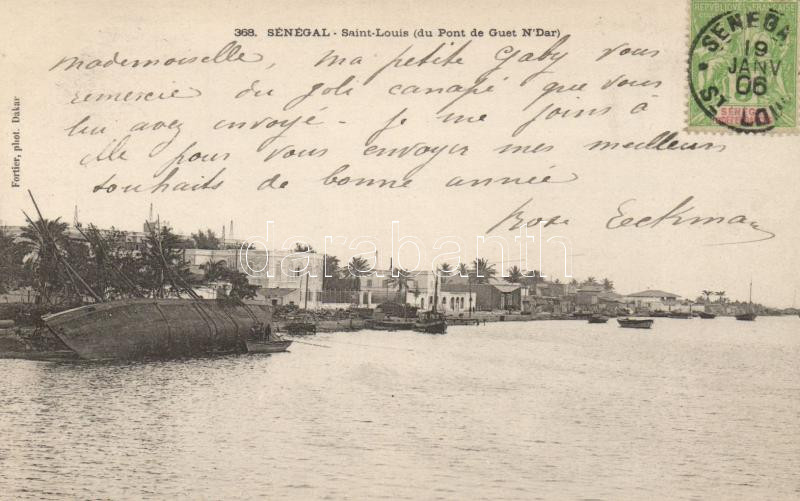 368. SÉNÉGAL - Saint-Louis (du Pont de Guet N'Dar)
mademoiselle, ma petite Gaby vous
remercie du joli canapé que vous
lui avez envoyé. Je me joins à
elle pour vous envoyer mes meilleurs
souhaits de bonne année
Rose Eeckman
Fortier, phot. Dakar
RÉPUBLIQUE FRANÇAISE
SÉNÉGAL
19
JANV
06
ST LOUIS
SÉNÉGAL
darabanth